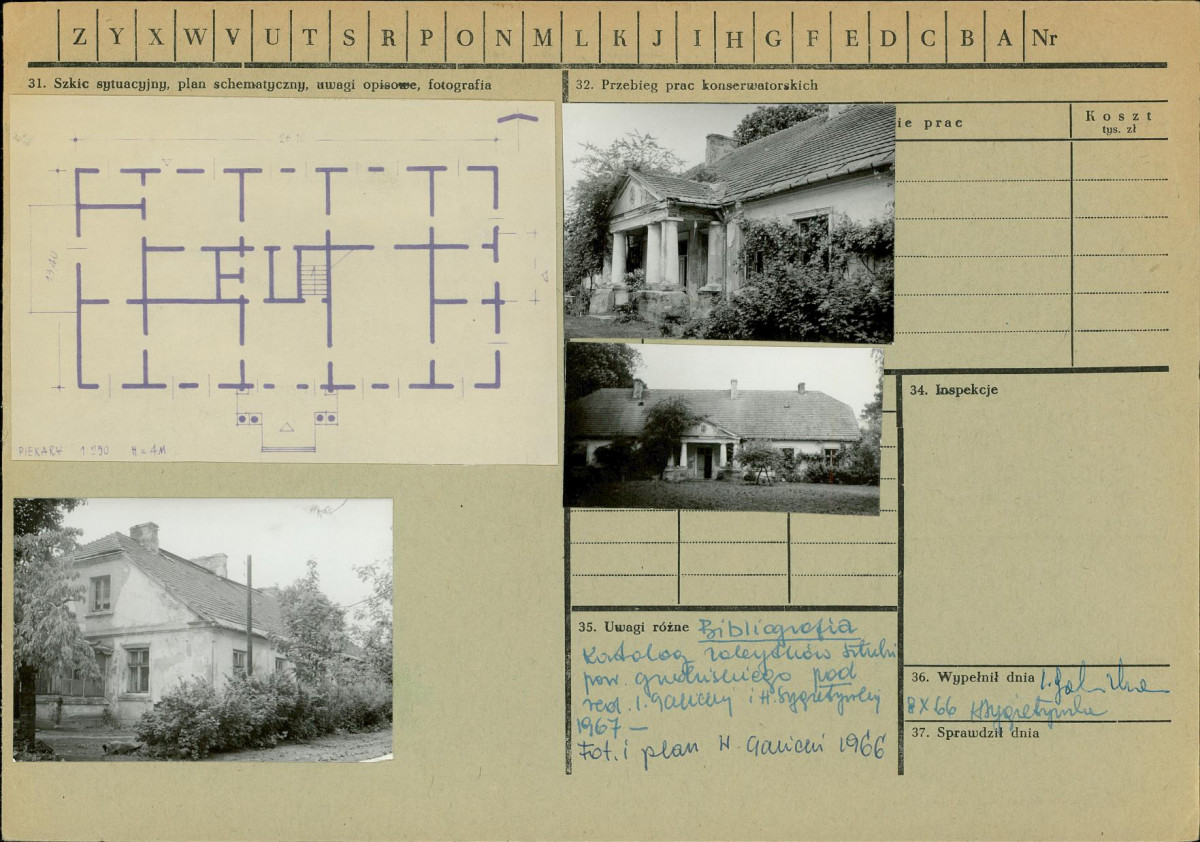 Z Y X W V U T S R P O N M L K J I H G F E D C B A Nr
31. Szkic sytuacyjny, plan schematyczny, uwagi opisowe, fotografia
32. Przebieg prac konserwatorskich
ie prac
Koszt
tys. zł
PIEKARY H = 4M
34. Inspekcje
35. Uwagi różne Bibliografia
Katalog zabytków sztuki
pow. grodziskiego pod
red. I. Galickiej i H. Sygietyńskiej
1967 —
Fot. i plan H. Galicki 1966
36. Wypełnił dnia
8 X 66 HSygietyńska
37. Sprawdził dnia